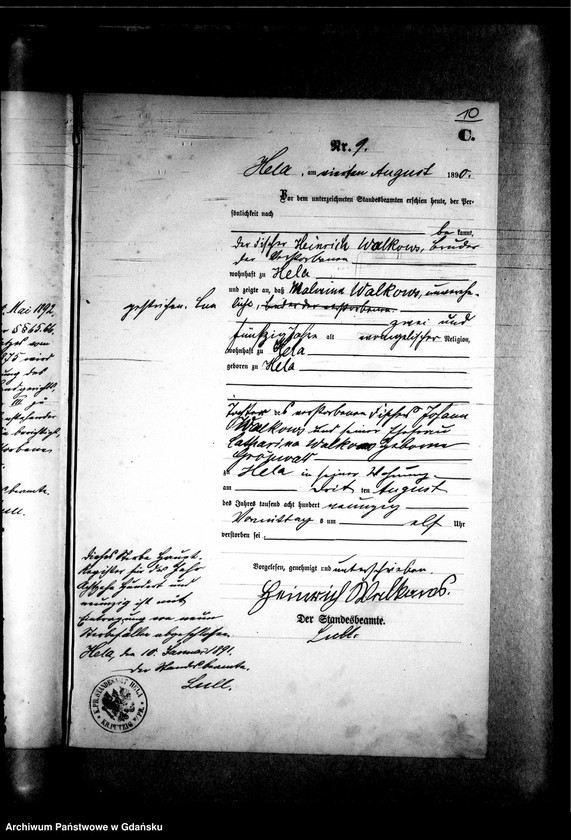 10
C.
Nr. 9.
Hela, am vierten August 1890.
Vor dem unterzeichneten Standesbeamten erschien heute, der Per-
sönlichkeit nach
be kannt,
der Fischer Heinrich Walkows, Bruder
der Verstorbenen
wohnhaft zu Hela
und zeigte an, daß Malwina Walkows, unverehe-
lichte, Bruder der Verstorbenen
zwei und
fünfzig Jahre alt evangelischer Religion,
wohnhaft zu Hela
geboren zu Hela
Tochter des verstorbenen Fischers Johann
Walkows und seiner Ehefrau
Catharina Walkows geborne
zu Hela in seiner Wohnung
am dritten August
des Jahres tausend acht hundert neunzig
Vormittags um elf Uhr
verstorben sei.
Vorgelesen, genehmigt und unterschrieben.
Heinrich Walkows.
Der Standesbeamte.
Lull.
gestrichen. Lull
Dieses Sterbe Haupt-
Register für das Jahr
Achtzehn Hundert und
neunzig ist mit
Eintragung von neun
Sterbefällen abgeschlossen.
Hela, den 10. Januar 1891.
Der Standesbeamte.
Lull.
K. PR. STANDESAMT HELA
KR. PUTZIG W/PR.
Mai 1892
Archiwum Państwowe w Gdańsku